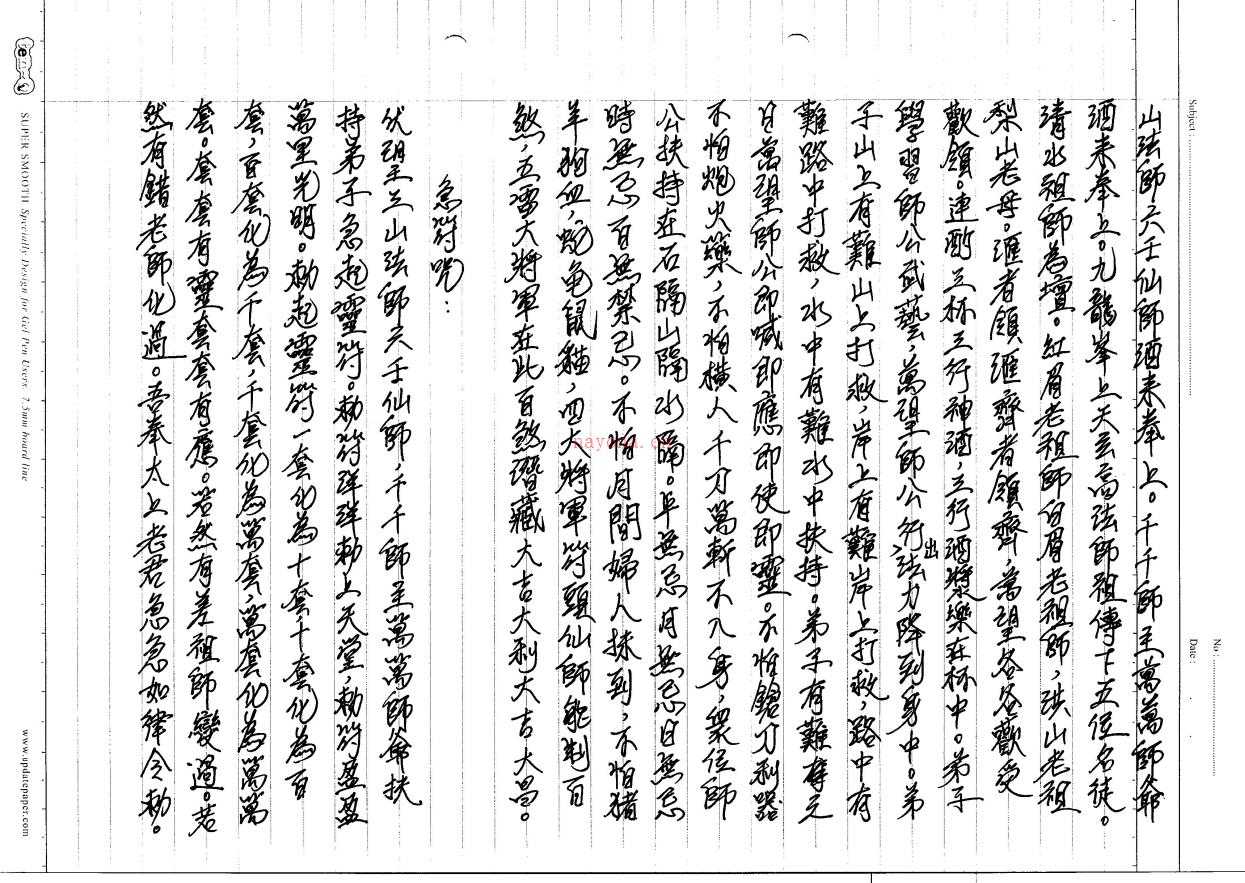 Subject :
No :
Date :
山法師六壬仙師酒來奉上。千千師主萬萬師爺
酒來奉上。九龍峯上天玄高法師祖傳下五位名徒。
清水祖師為壇。紅眉老祖師白眉老祖師，洪山老祖
梨山老母。滙者領滙齊者領齊，萬望各各歡受
歡領。連酌三杯三行神酒，三行酒漿藥在杯中。弟子
學習師公武藝，萬望師公行出法力降到身中。弟
子山上有難山上打救，岸上有難岸上打救，路中有
難路中打救，水中有難水中扶持。弟子有難
日萬望師公即喊即應即使即靈。不怕鎗刀利器
不怕炮火藥，不怕橫人千刀萬斬不入身，眾位師
公扶持在石隔山隔水隔。年無忌月無忌日無忌
時無忌百無禁忌。不怕月間婦人抹到，不怕猪
羊狗血，蛇龟鼠貓，四大將軍符頭仙師能制百
煞，五雷大將軍在此百煞潛藏大吉大利大吉大昌。
急符咒：
伏望茅山法師六壬仙師，千千師主萬萬師爺扶
持弟子急起靈符。勅符洋洋勅上天堂，勅符盈盈
萬里光明。勅起靈符一套化為十套，十套化為百
套，百套化為千套，千套化為萬套，萬套化為萬萬
套。套套有靈套套有應。若然有差祖師變過。若
然有錯老師化過。吾奉太上老君急急如律令勅。
SUPER SMOOTH Specially Design for Gel Pen Users. 7.5mm board line
www.updatepaper.com